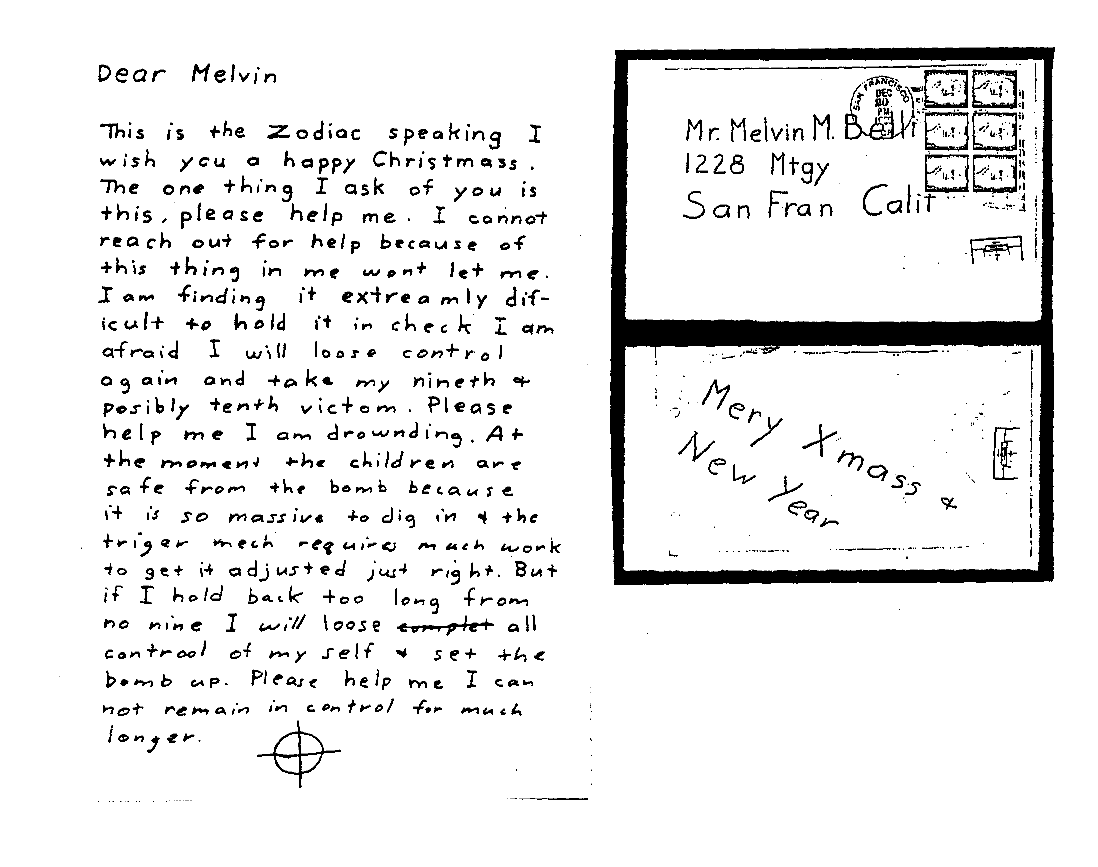 Dear Melvin
This is the Zodiac speaking I
wish you a happy Christmass.
The one thing I ask of you is
this, please help me. I cannot
reach out for help because of
this thing in me wont let me.
I am finding it extreamly dif-
icult to hold it in check I am
afraid I will loose control
again and take my nineth &
posibly tenth victom. Please
help me I am drownding. At
the moment the children are
safe from the bomb because
it is so massive to dig in & the
triger mech requires much work
to get it adjusted just right. But
if I hold back too long from
no nine I will loose complet all
controol of my self & set the
bomb up. Please help me I can
not remain in control for much
longer.
SAN FRANCISCO
DEC
Mr. Melvin M. Belli
1228 Mtgy
San Fran Calif
Mery Xmass &
New Year